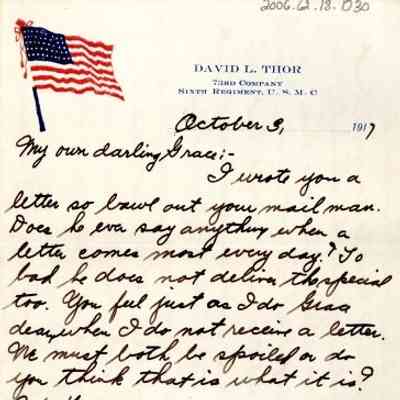 2006.62.18.030
DAVID L. THOR
73RD COMPANY
SIXTH REGIMENT, U. S. M. C
October 3, 1917
My own darling Grace:-
I wrote you a
letter so bawl out your mail man.
Does he ever say anything when a
letter comes most every day? To
bad he does not deliver the special
too. You feel just as I do Grace
dear, when I do not receive a letter.
We must both be spoiled or do
you think that is what it is?